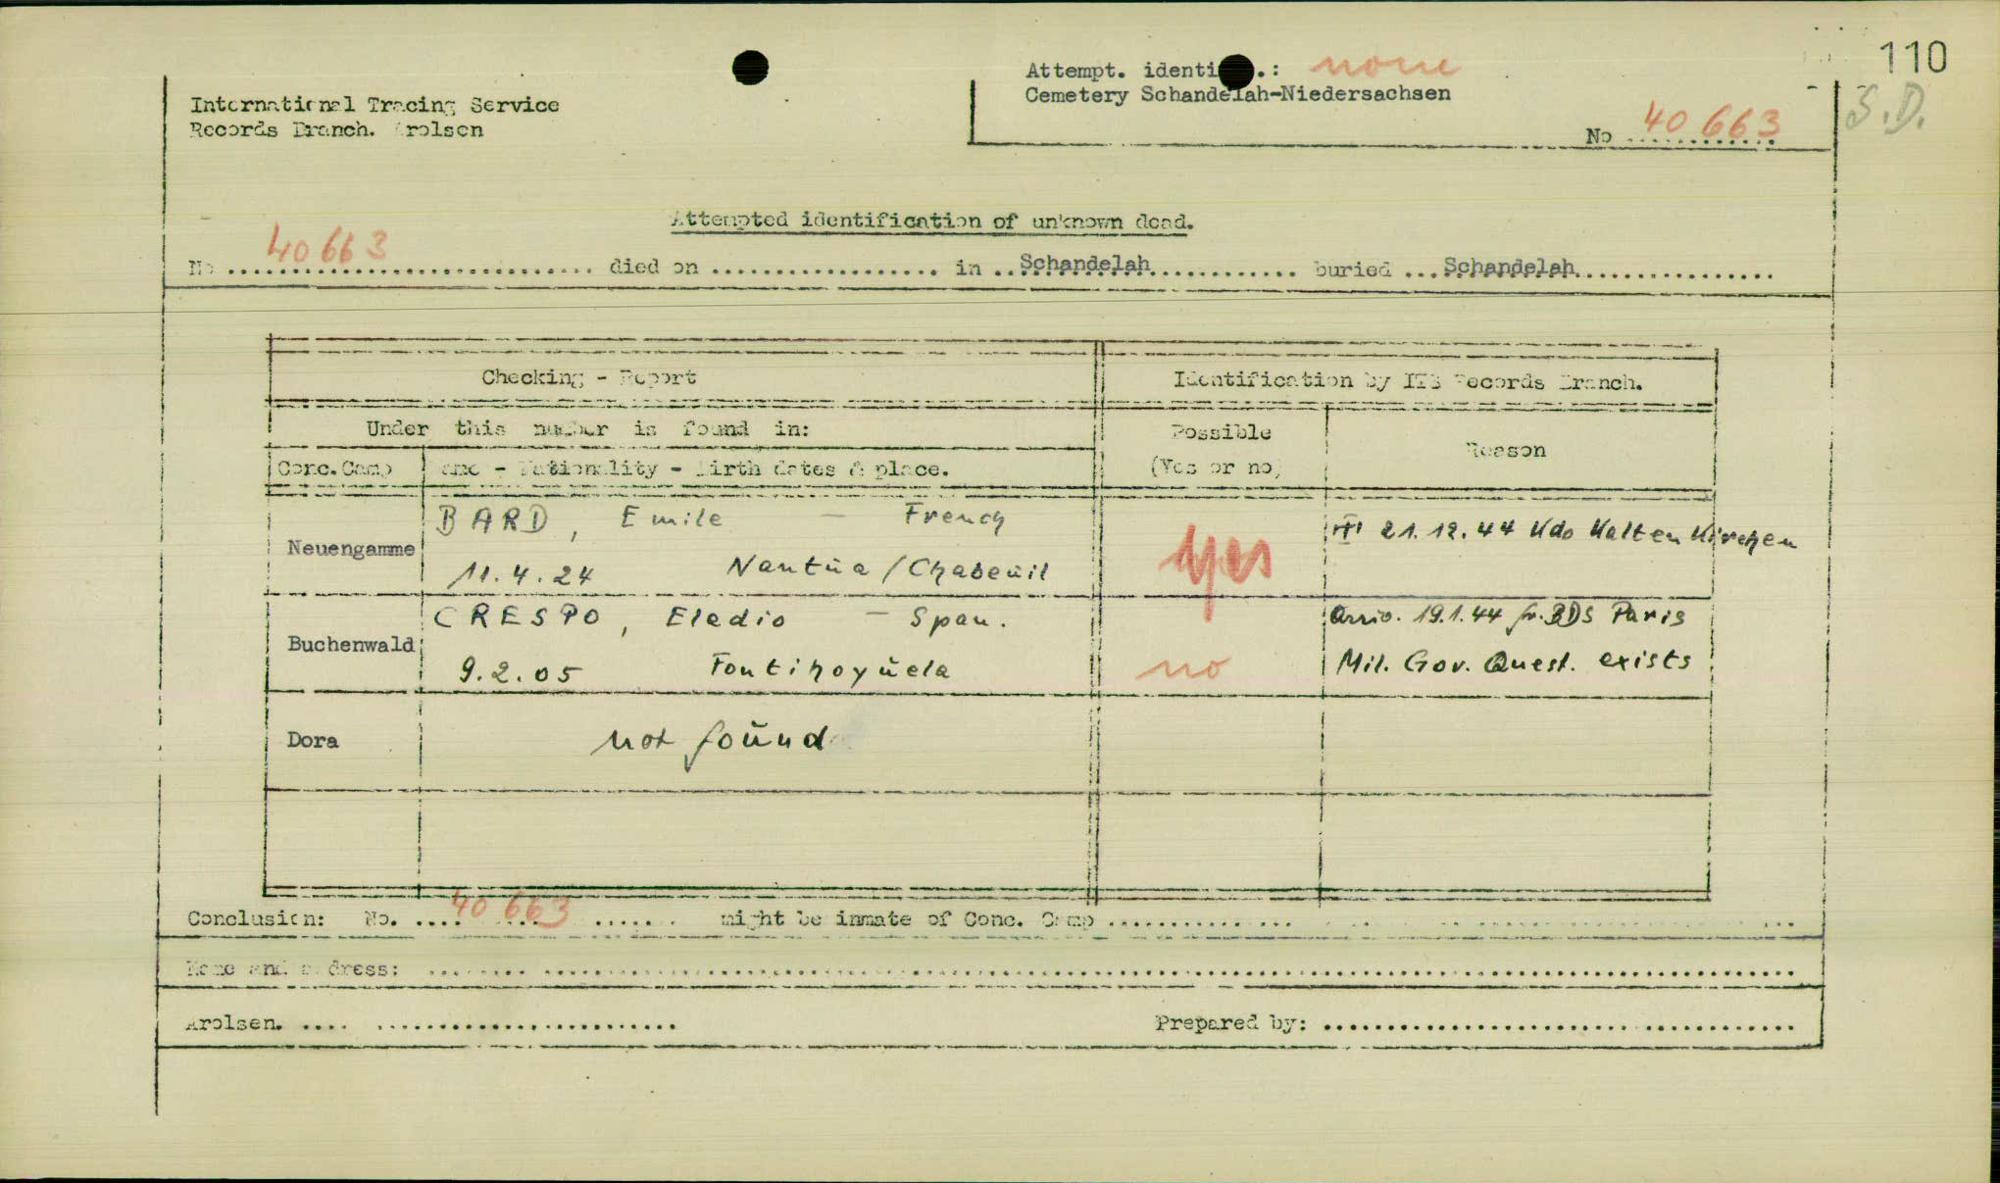 110
S.D.
Attempt. identi .: none
Cemetery Schandelah-Niedersachsen
No 40 663
International Tracing Service
Records Branch. Arolsen
Attempted identification of unknown dead.
No 40 663 died on in Schandelah buried Schandelah
Checking - Report
Identification by ITS Records Branch.
Under this number is found in:
Possible
(Yes or no)
Reason
Conc.Camp
Name - Nationality - Birth dates & place.
Neuengamme
BARD, Emile - French
11.4.24 Nantŭa / Chabeŭil
yes
21.12.44 Kdo Kaltenkirchen
Buchenwald
CRESPO, Eladio - Span.
9.2.05 Fontihoyŭela
no
arriv. 19.1.44 fr. BDS Paris
Mil. Gov. Quest. exists
Dora
not foŭnd
Conclusion: No. 40 663 might be inmate of Conc. Camp
Name and address:
Arolsen.
Prepared by: